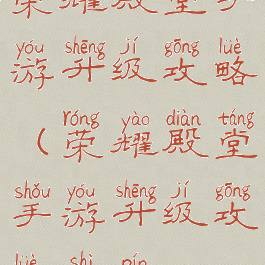 荣耀殿堂手
yóu shēng jí gōng lüè
游升级攻略
róng yào diàn táng
（荣耀殿堂
shǒu yóu shēng jí gōng
手游升级攻
lüè shì pín